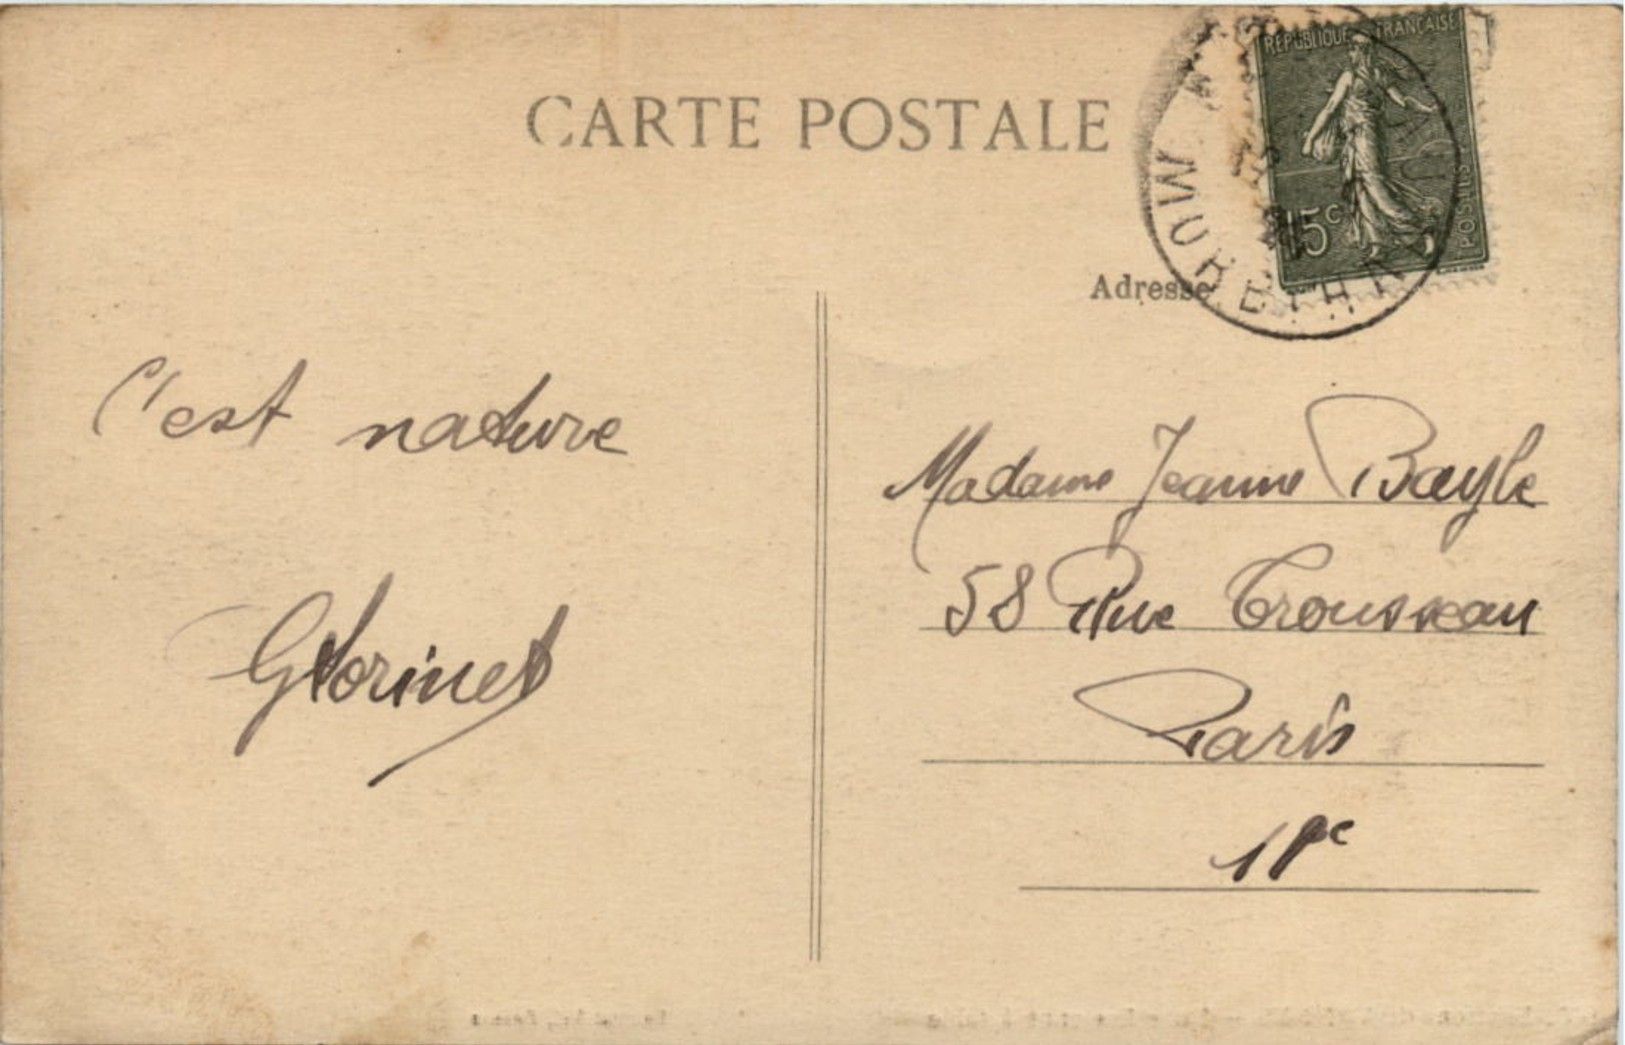 CARTE POSTALE
RÉPUBLIQUE FRANÇAISE
15c
POSTES
Adresse
C'est nature
Madame Jeanne Bayle
58 Rue Trousseau
Paris